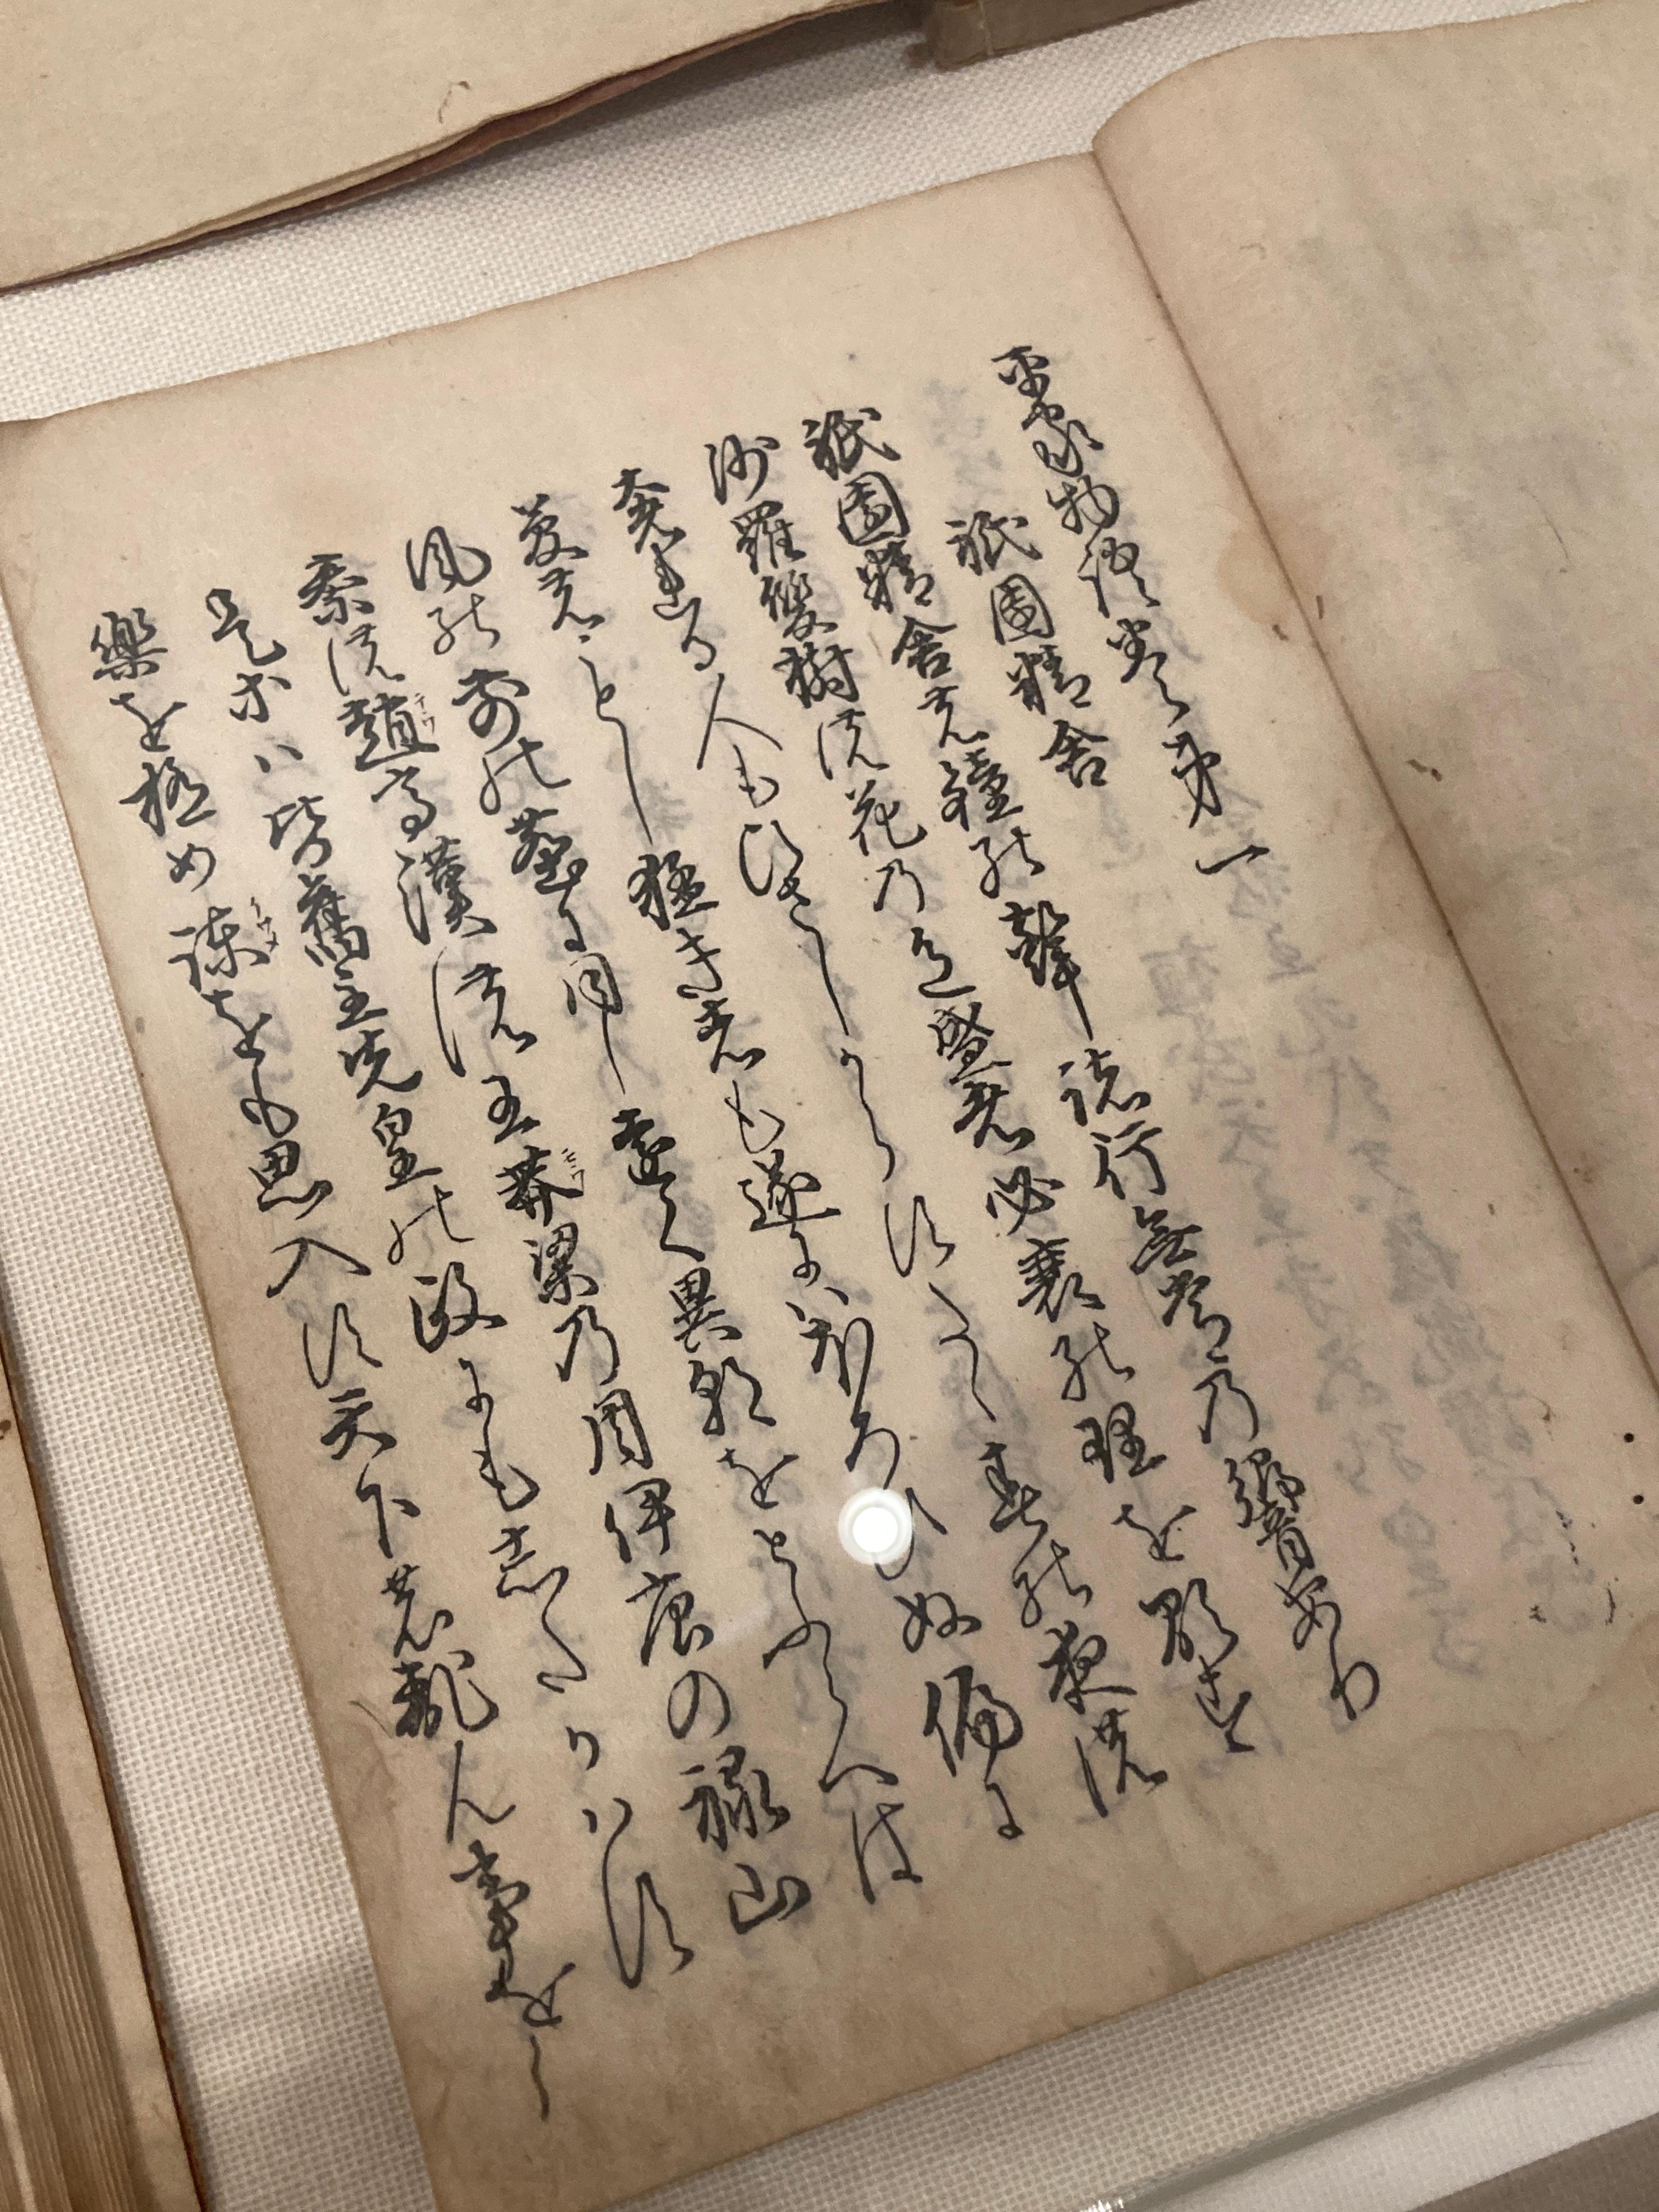 平家物語巻第一
祇園精舎
祇園精舎の鐘の聲諸行無常の響あり
沙羅雙樹の花の色盛者必衰の理を顕す
奢れる人もひさしからすたゝ春の夜の
夢のことし猛き者も遂にハほろひぬ偏に
風の前の塵に同し遠く異朝をとふらへは
秦の趙高漢の王莽梁の周伊唐の禄山
是等ハ皆舊主先皇の政にもしたかハす
樂を極め諫をも思入す天下の亂ん事をし